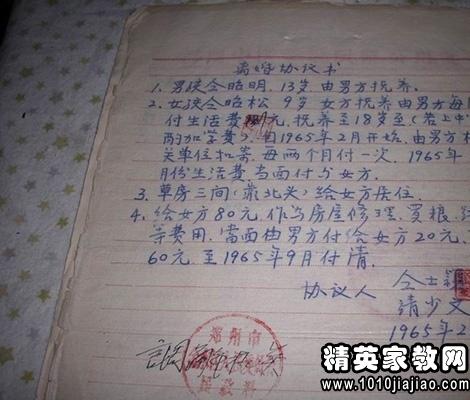 离婚协议书
1. 男孩仝昭明，13岁由男方抚养。
2. 女孩仝昭松 9岁 女方抚养由男方每
付生活费 元，抚养至18岁至（若上中
酌加学费）自1965年2月开始，由男方
关单位扣寄，每两个月付一次，1965年
月份生活费，当面付出女方
3. 草房三间（靠北头）给女方居住。
4. 给女方80元作为房屋修理、买粮
等费用，当面由男方付给女方20元
60元至1965年9月付清。
协议人 仝士
少文
1965年2
郑州市
精英家教网
www.1010jiajiao.com